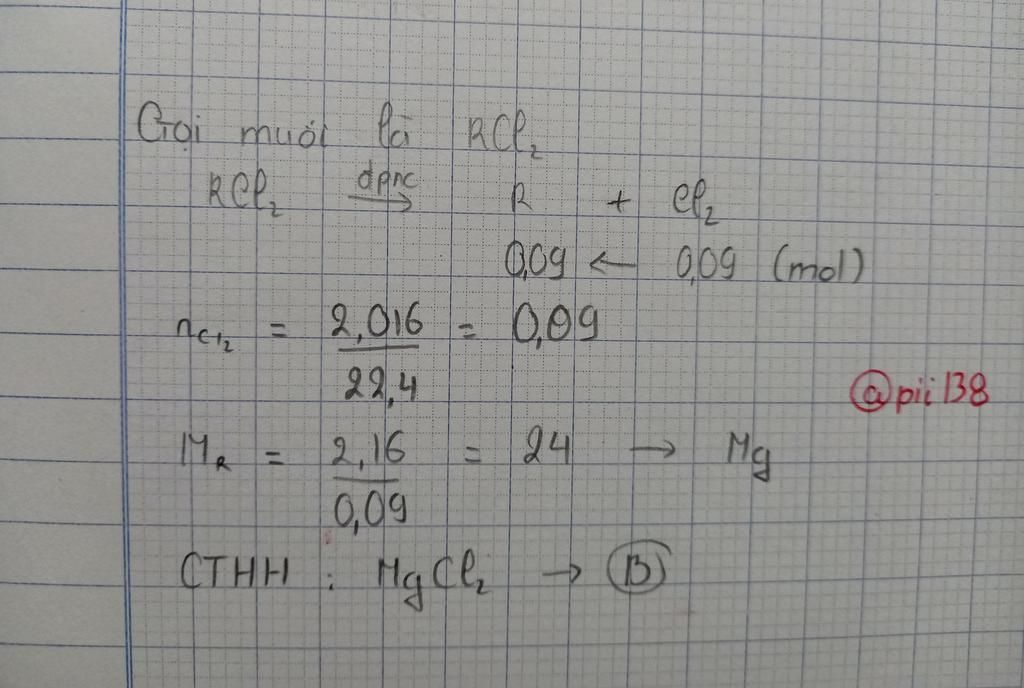 Gọi muối là RCl₂
RCl₂ đpnc → R + Cl₂
0,09 ← 0,09 (mol)
nCl₂ = 2,016 / 22,4 = 0,09
@pii138
M_R = 2,16 / 0,09 = 24 → Mg
CTHH : MgCl₂ → B